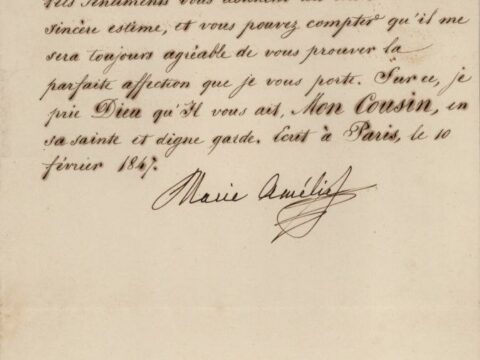 sentiments vous
sincère estime, et vous pouvez compter qu'il me
sera toujours agréable de vous prouver la
parfaite affection que je vous porte. Sur ce, je
prie Dieu qu'Il vous ait, Mon Cousin, en
sa sainte et digne garde. Ecrit à Paris, le 10
février 1847.
Marie Amélie